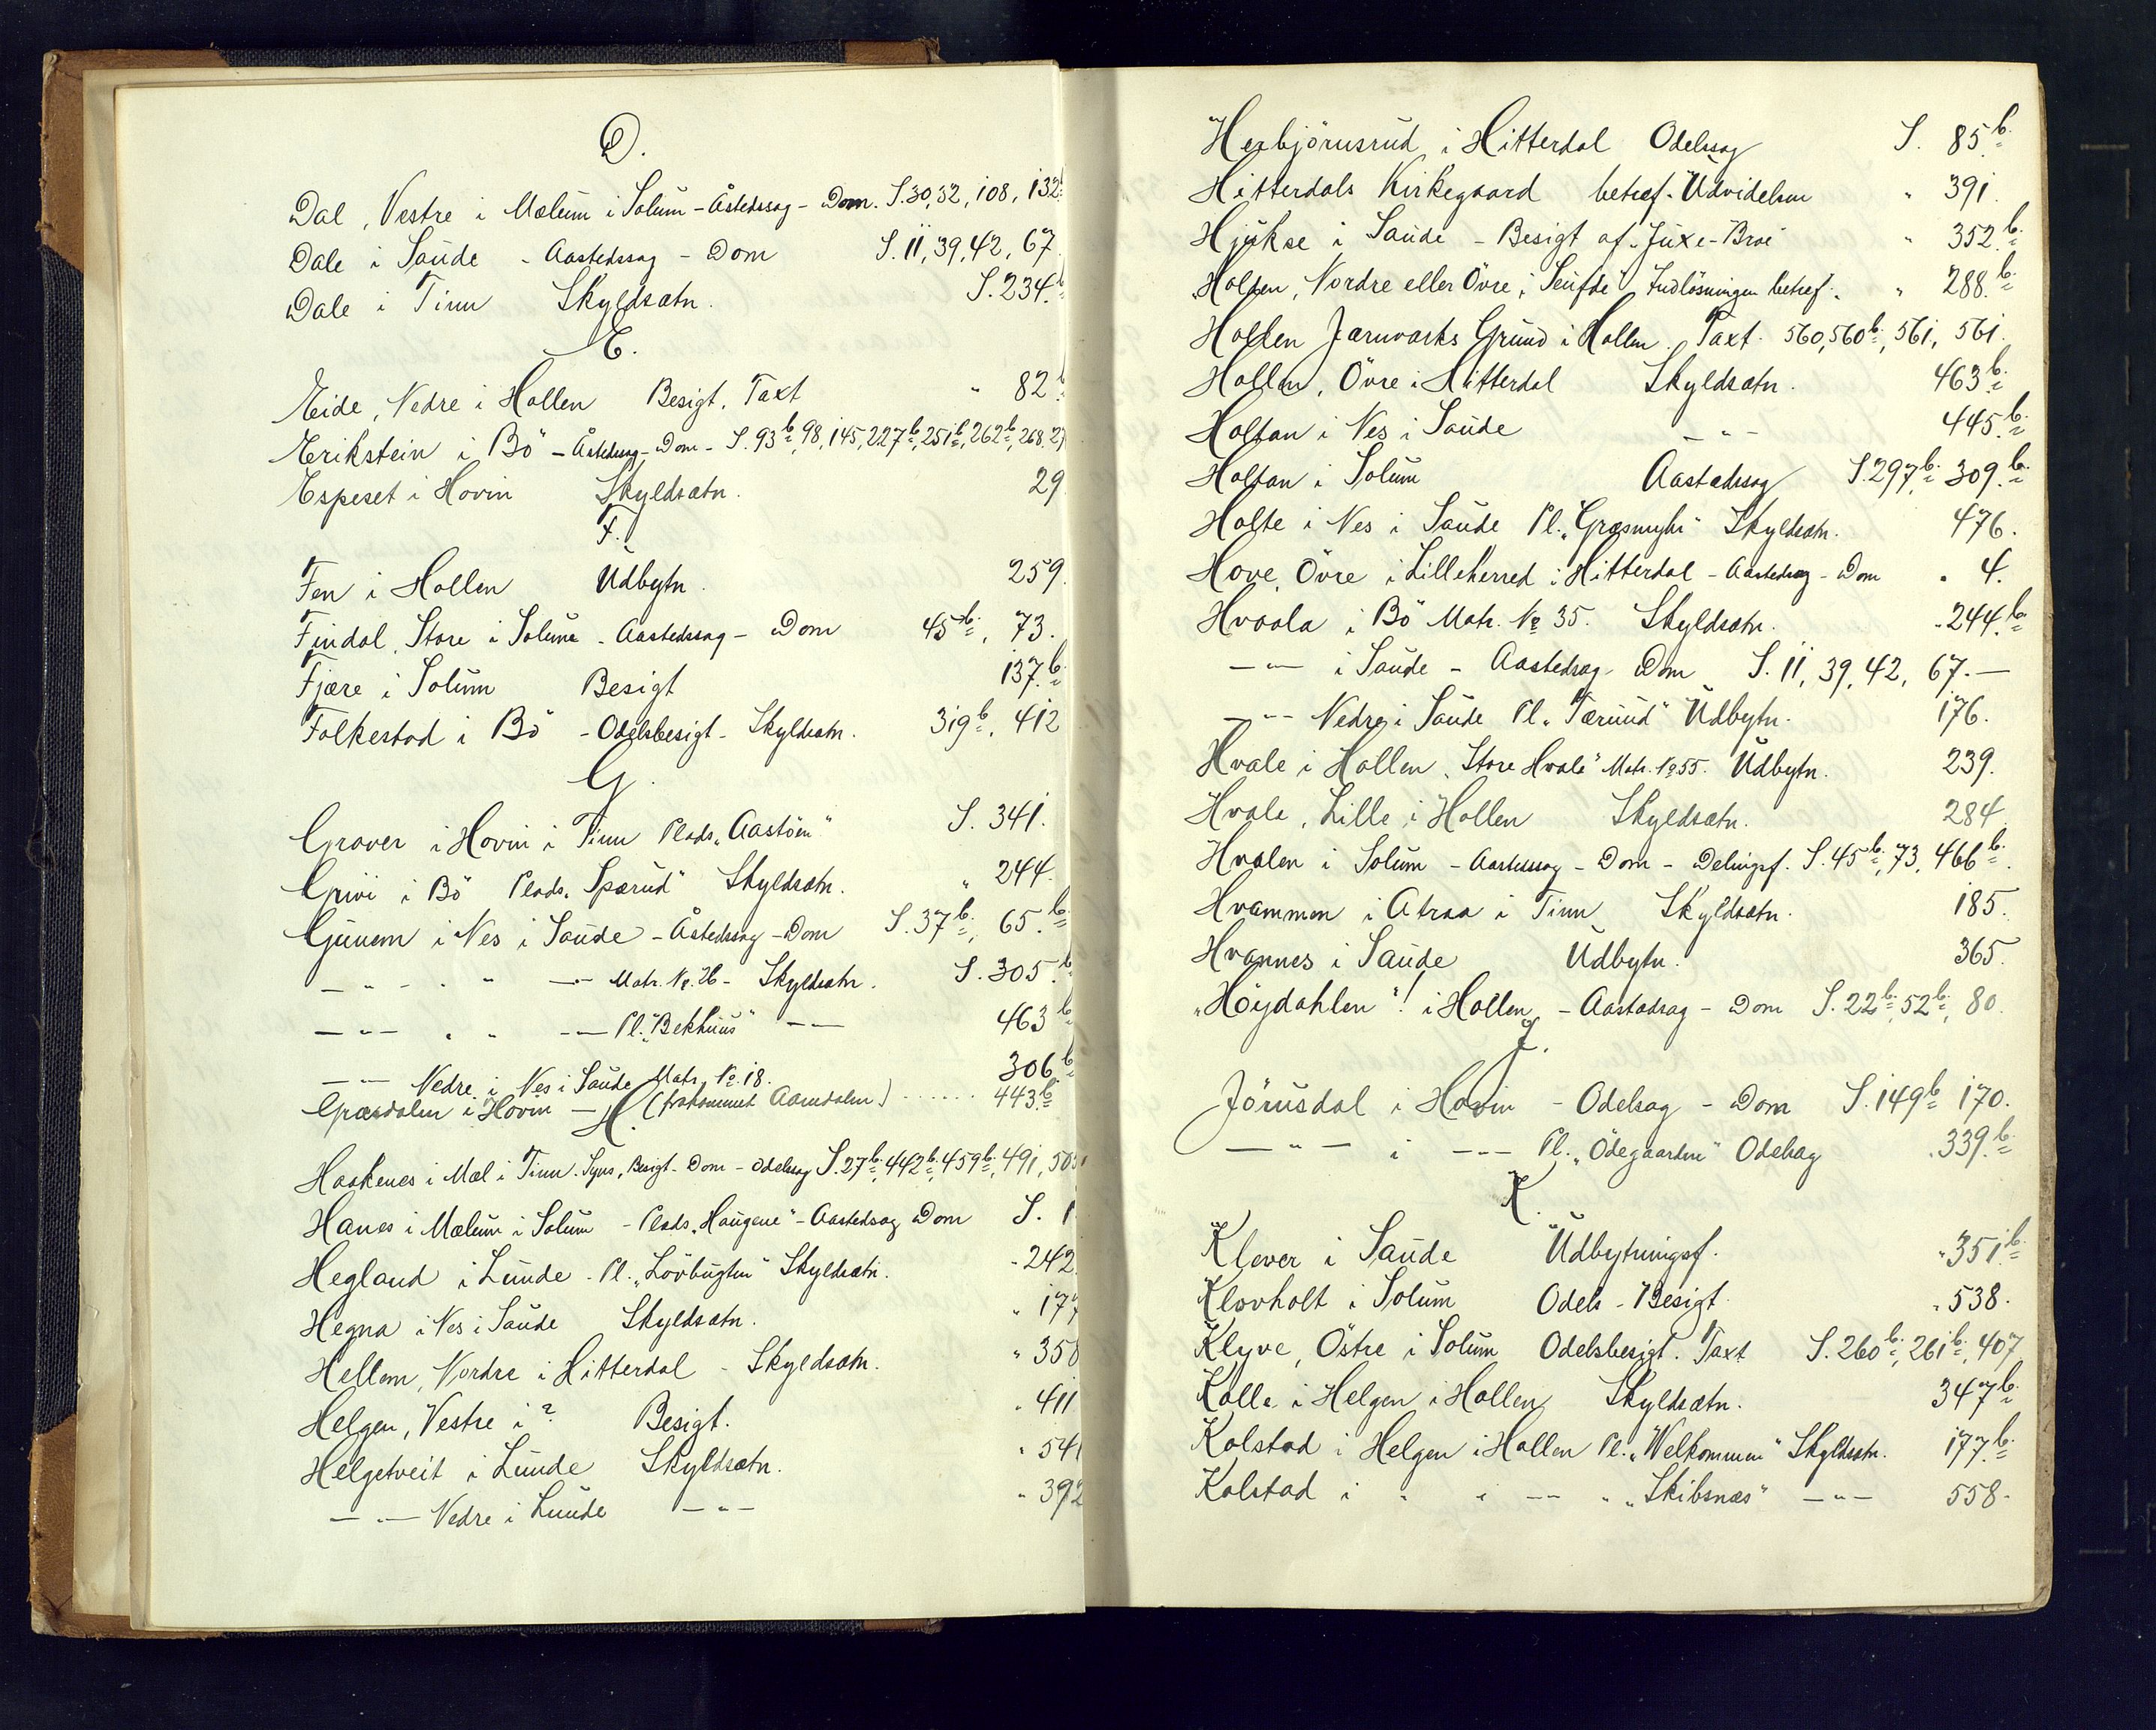 D.
Dal, Vestre i Mælum i Solum - Åstedssag - Dom. S. 30, 32, 108, 132
Dale i Saude - Aastedssag - Dom S. 11, 39, 42, 67
Dale i Tinn Skyldsætn. S. 234.b
E.
Eide, Nedre i Hollen Besigt. Taxt " 82
Erikstein i Bö - Åstedssag - Dom - S. 93b, 98, 145, 227b, 251b, 262b, 268.
Espeset i Hovin Skyldsætn. 29
F.
Fen i Hollen Udbytn. 259
Findal, Store i Solum - Aastedssag - Dom 45b, 73.
Fjære i Solum Besigt 137.b
Folkestad i Bö - Odelsbesigt - Skyldsætn. 319b, 412
G.
Graver i Hovin i Tinn Plads "Aastöen" S. 341.
Grivi i Bö Plads "Sparud" Skyldsætn. " 244.
Gunem i Nes i Saude - Åstedssag - Dom S. 37b, 65.b
— " — " " — " — Matr. No. 26 - Skyldsætn. S. 305.b
— " — " " — " — Pl. "Bekhuus" — " — 463b
— " — Nedre i Nes i Saude Matr. No. 18. 306b
Græsdalen i Hovin — (frakommet Aamdalen) . . . . . . 443.b
H.
Haakenes i Mæl i Tinn. Syns, Besigt - Dom - Odelssag S. 27b, 442b, 459b, 491, 505
Hanes i Mælum i Solum - Plads "Haugene" - Aastedssag Dom S. 1
Hegland i Lunde - Pl. "Lövbugten" Skyldsætn. " 242
Hegna i Nes i Saude Skyldsætn. " 177
Hellem, Nordre i Hitterdal - Skyldsætn. " 358
Helgen, Vestre i ? Besigt. " 411
Helgetveit i Lunde Skyldsætn. " 541
— " — Nedre i Lunde — " — " 392
Herbjörnsrud i Hitterdal Odelssag S. 85.b
Hitterdals Kirkegaard betræf. Udvidelsen " 391.
Hjukse i Saude - Besigt af "Juxe-Broe" " 352.b
Holden, Nordre eller Övre i "Seufde" Indlösningen betræf. " 288.b
Hollen Jærnværks Grund i Hollen. Taxt. 560, 560b, 561, 561.
Hollen, Övre i Hitterdal Skyldsætn. 463b
Holtan i Nes i Saude — " — 445.b
Holtan i Solum Aastedssag S. 297b, 309.b
Holte i Nes i Saude Pl. Skyldsætn. 476.
Hove, Övre i Lilleherred i Hitterdal - Aastedssag - Dom " 4.
Hvaala i Bö Matr. No 35. Skyldsætn. " 244.b
— " — i Saude - Aastedssag - Dom S. 11, 39, 42, 67. —
— " — Nedre i Saude Pl. "Tærund" Udbytn. 176.
Hvale i Hollen "Store Hvale" Matr. No 55. Udbytn. 239.
Hvale, Lille i Hollen Skyldsætn. 284
Hvalen i Solum - Aastedssag - Dom - Delingsf. S. 45b, 73, 466b.
Hvammen i Atraa i Tinn Skyldsætn. 185.
Hvannes i Saude Udbytn. 365.
"Höydahlen"! i Hollen - Aastadsag - Dom S. 22b, 52b, 80.
J.
Jörusdal i Hovin - Odelsag - Dom S. 149b 170.
— " — i — " — Pl. "Ödegaarden" Odelsag " 339.b
K.
Klever i Saude Udbytningsf. " 351b
Klovholt i Solum Odels-Besigt. " 538.
Klyve, Östre i Solum Odelsbesigt. Taxt S. 260b, 261b, 407
Kolle i Helgen i Hollen Skyldsætn. 347b
Kolstad i Helgen i Hollen Pl. "Welkommen" Skyldsætn. 177.b
Kolstad i " i — " — " "Skibsnæs" — " — 558.